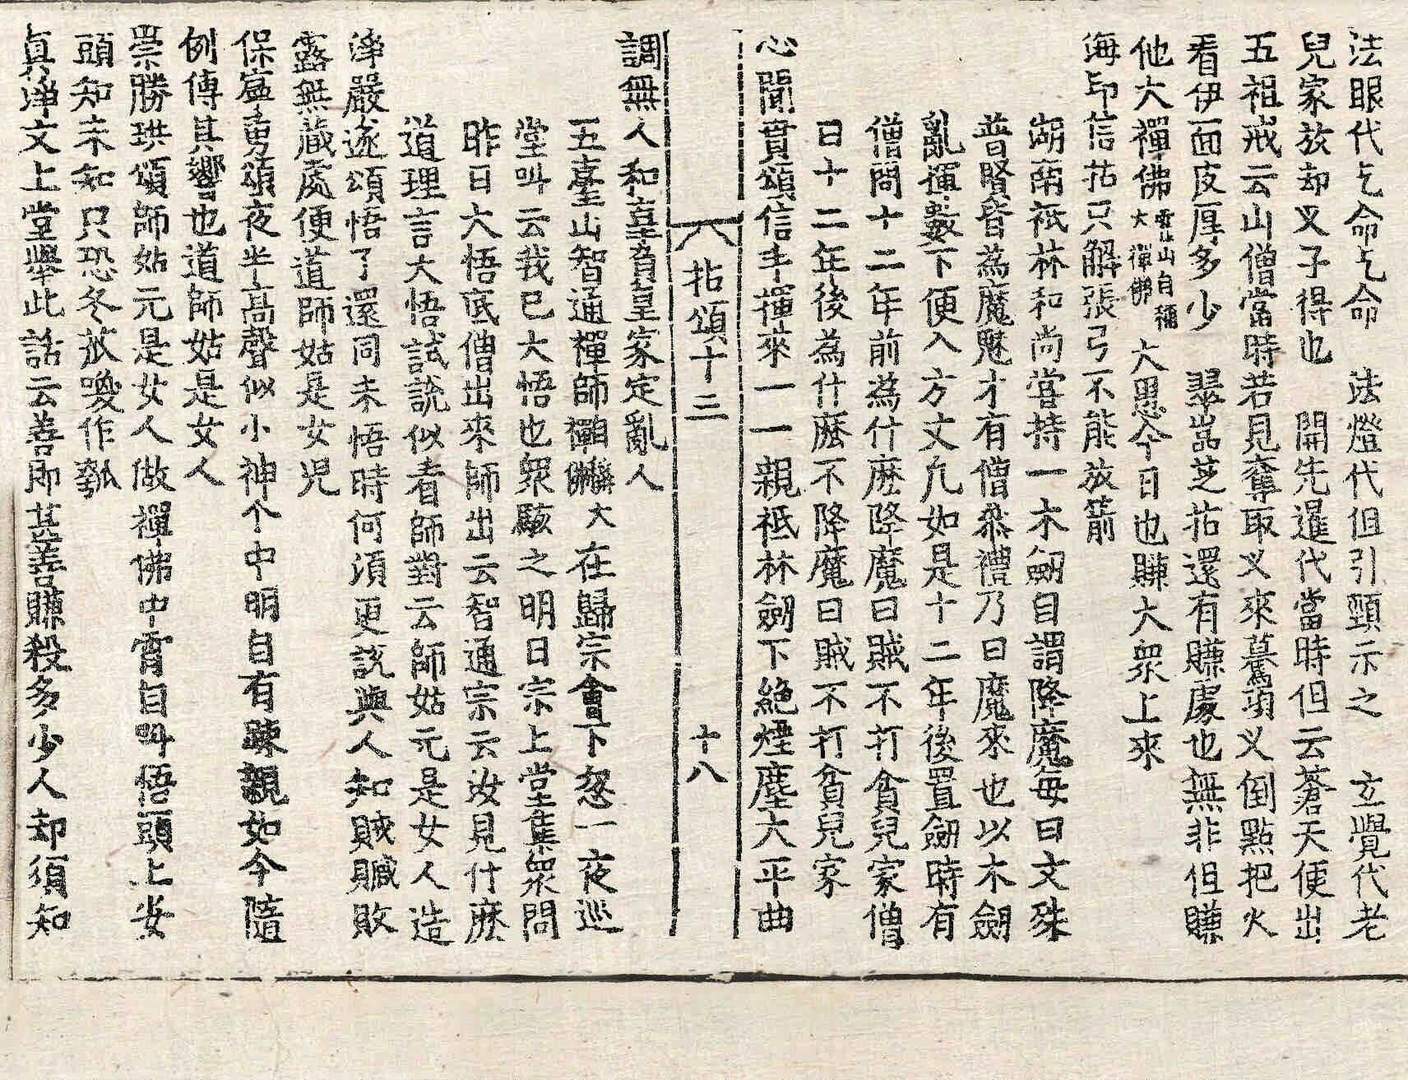 法眼代乞命乞命　法燈代但引頸示之　立覺代老
兒家放却叉子得也　開先暹代當時但云蒼天便出
五祖戒云山僧當時若見奪取叉來驀項叉倒點把火
看伊面皮厚多少　翠嵓芝拈還有賺處也無非但賺
他大禪佛霍山自稱大禪佛大愚今日也賺大衆上來
海印信拈只解張弓不能放箭
湖南祇林和尚甞持一木劒自謂降魔每曰文殊
普賢皆為魔魅才有僧叅禮乃曰魔來也以木劒
亂揮數下便入方丈凢如是十二年後置劒時有
僧問十二年前為什麽降魔曰賊不打貧兒家僧
曰十二年後為什麽不降魔曰賊不打貧兒家
心聞賁頌信手揮來一一親祇林劒下絶煙塵大平曲
拈頌十三　十八
調無人和豈負皇家定亂人
五臺山智通禪師自稱大禪佛在歸宗會下忽一夜巡
堂叫云我已大悟也衆駭之明日宗上堂集衆問
昨日大悟底僧出來師出云智通宗云汝見什麽
道理言大悟試說似看師對云師姑元是女人造
淨嚴遂頌悟了還同未悟時何須更説與人知賊贓敗
露無藏處便道師姑是女兒
保寧勇頌夜半高聲似小神个中明自有踈親如今隨
例傳其響也道師姑是女人
崇勝珙頌師姑元是女人做禪佛中霄自叫悟頭上安
頭知未知只恐冬苽喚作瓠
眞淨文上堂舉此話云善即甚善賺殺多少人却須知